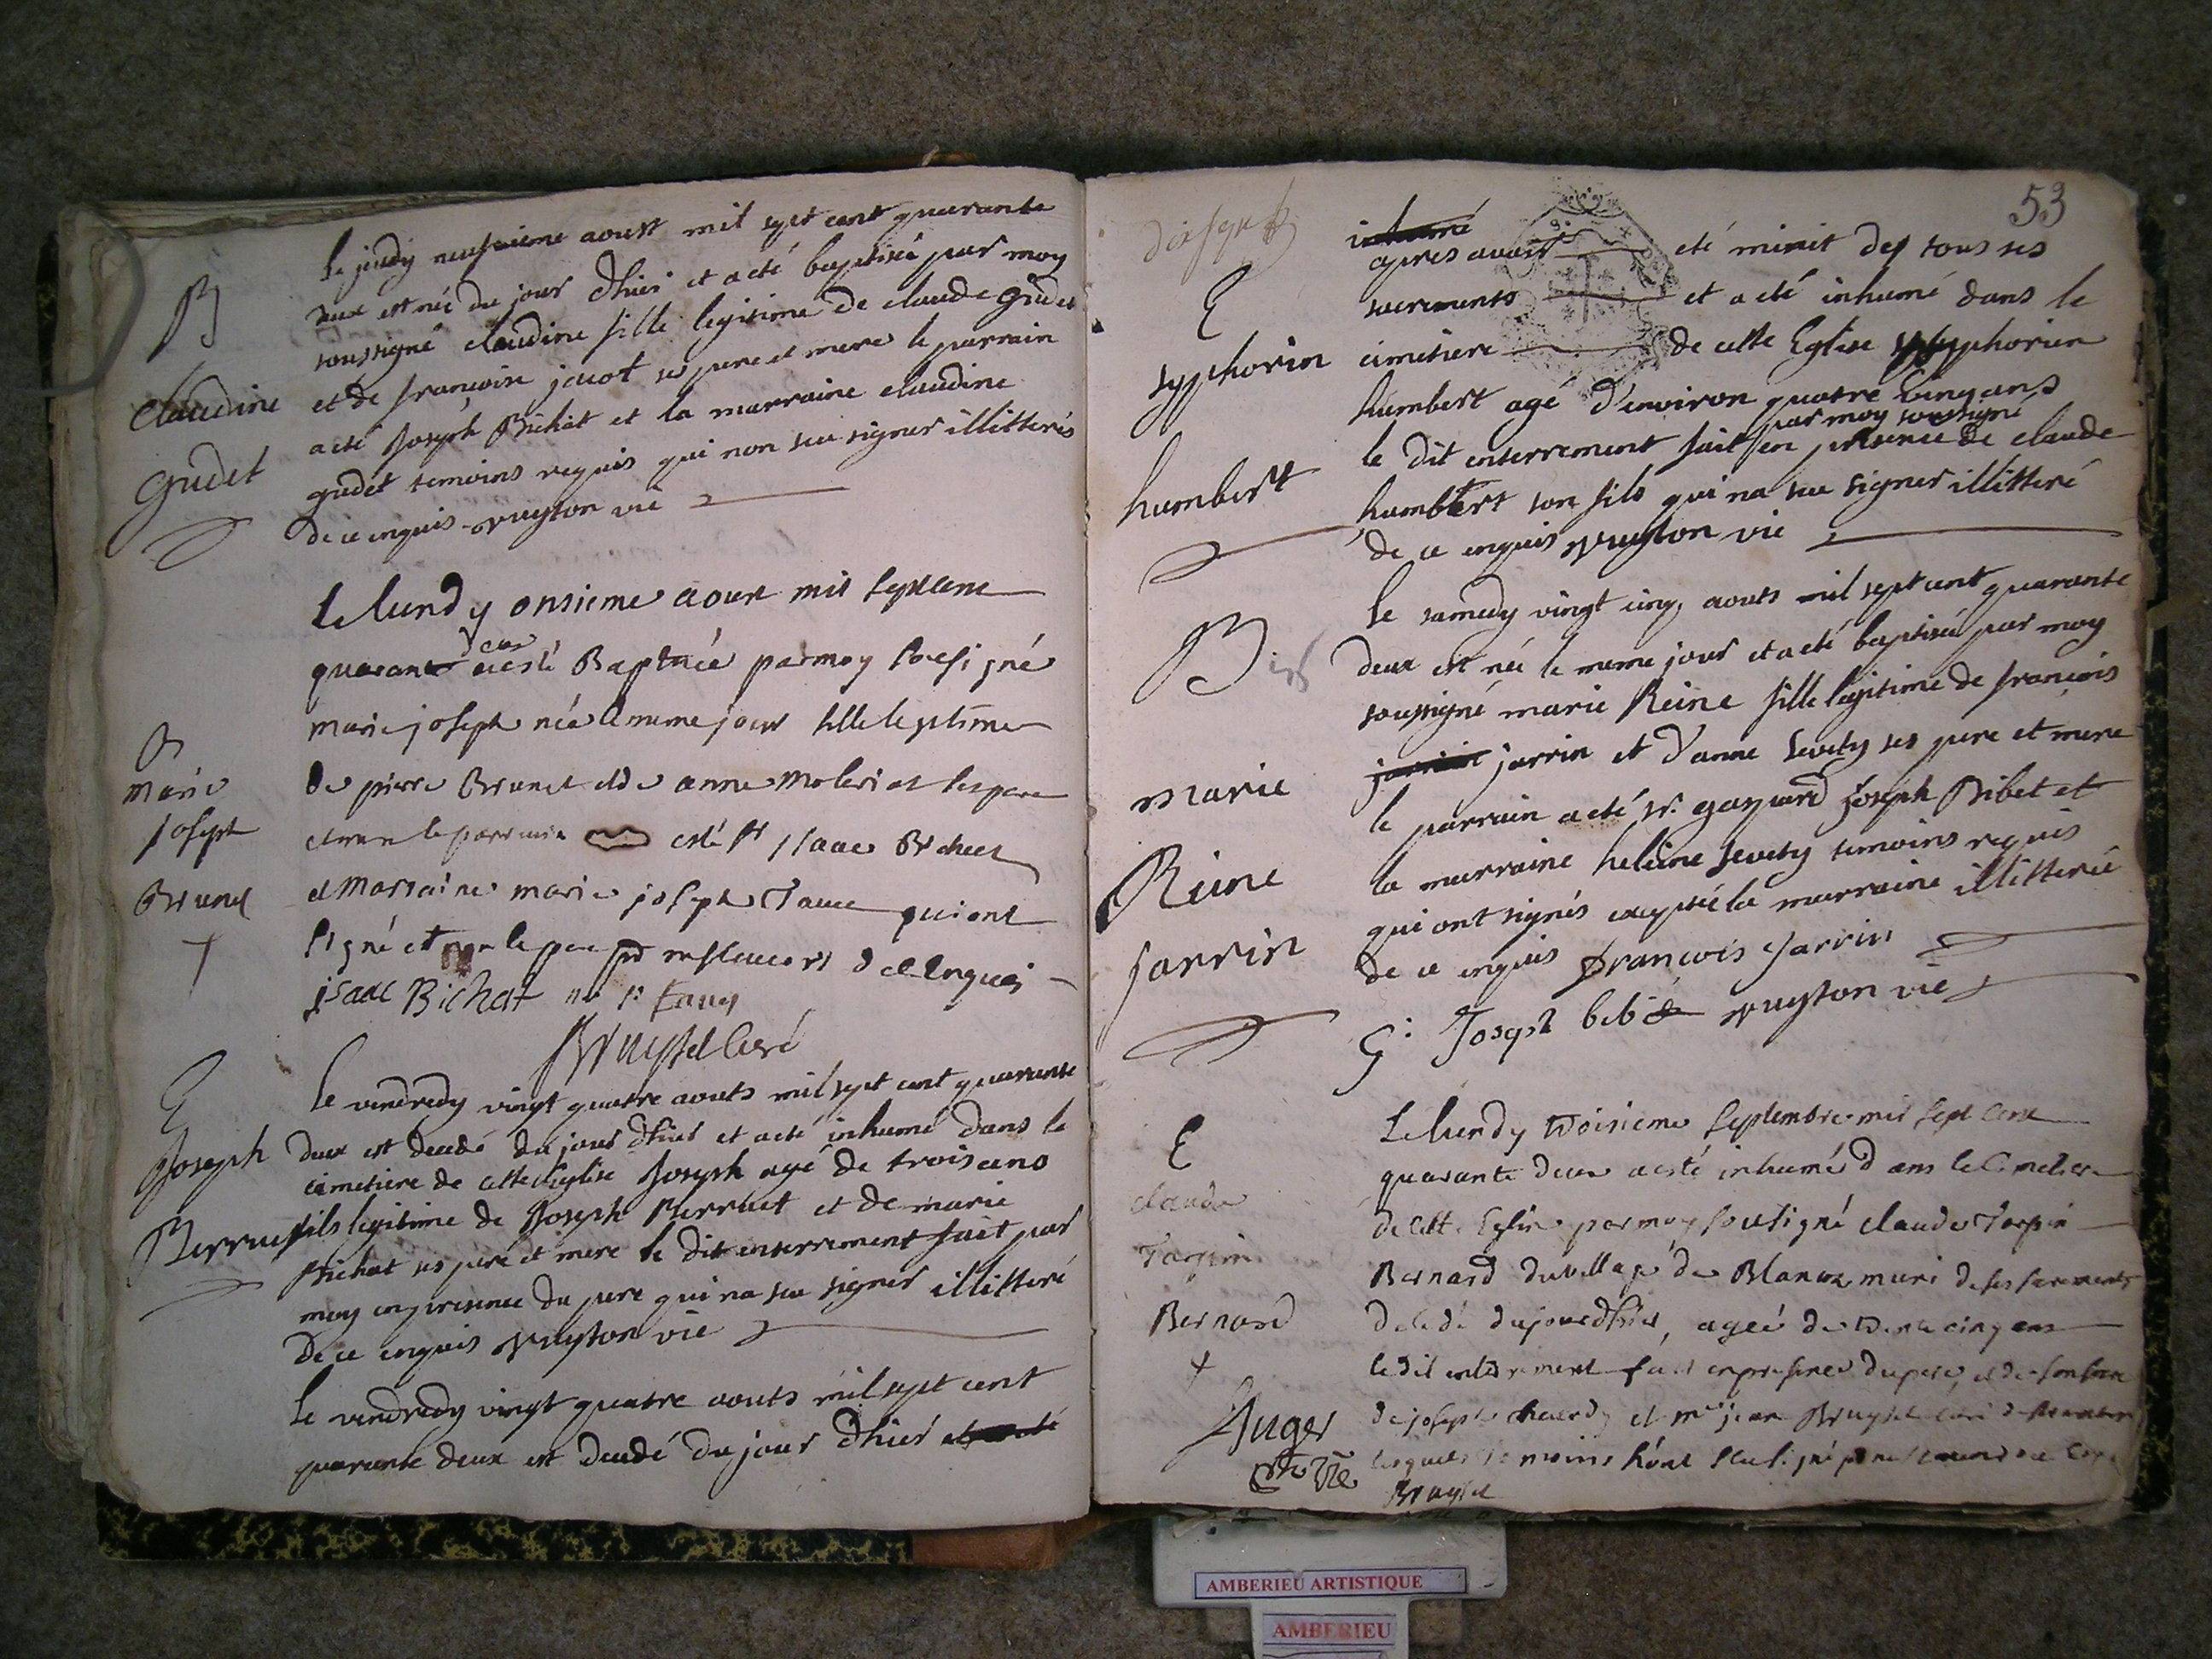 B
Claudine
Gudet
Le jeudy neufvieme aoust mil sept cent quarante
deux est née du jour d'hier et a eté baptisée par moy
soussigné claudine fille legitime de claude Gudet
et de francoise jacot ses pere et mere le parrain
a eté Joseph Bichat et la marraine claudine
gudet temoins requis qui non seu signer illitterés
de ce enquis vuyton vié
B
Marie
joseph
Brunet
Le lundy onsieme aoux mil sept cent
quarante deux a esté Baptisée par moy sousigné
marie joseph née le meme jour fille legitime
de pierre Brunet et de anne ses pere
et mere le parrain esté sr Isaac Bichat
et marraine marie joseph qui ont
signé et non le pere pr ne scavoir de ce enquis
isaac Bichat
Bruyset curé
E
Joseph
Berruet
Le vendredy vingt quatre aouts mil sept cent quarante
deux est decedé du jour d'hier et a eté inhumé dans le
cimetiere de cette Eglise Joseph agé de trois ans
fils legitime de Joseph Berruet et de marie
Bichat ses pere et mere le dit enterrement fait par
moy en presence du pere qui na seu signer illitteré
de ce enquis vuyton vié
Le vendredy vingt quatre aouts mil sept cent
quarante deux est decedé du jour d'hier et a eté
53
E
syphorin
humbert
inhumé
apres avoir eté munit des tous ses
sacrements et a eté inhumé dans le
cimetiere de cette Eglise syphorien
humbert agé d'environ quatre vingt ans
par moy soussigné
le dit enterrement fait en presence de claude
humbert son fils qui na seu signer illitteré
de ce enquis vuyton vié
B
marie
Reine
jarrin
Le samedy vingt cinq aouts mil sept cent quarante
deux est née le meme jour et a eté baptisée par moy
soussigné marie Reine fille legitime de francois
jarrin jarrin et d'anne Sevety ses pere et mere
le parrain a eté sr. gaspard joseph Bibet et
la marraine heleine Sevety temoins requis
qui ont signés excepté la marraine illitterée
de ce enquis francois jarrin
G. Joseph bibet vuyton vié
E
claude
Tarpin
Bernard
Auger
Le lundy troisieme septembre mil sept cent
quarante deux a esté inhumé dans le cimetiere
de cette Eglise par moy sousigné claude Tarpin
Bernard du village de Blanaz muni de ses sacrements
decedé du jour d'hier, ageé de trente cinq ans
le dit enterrement fait en presence du pere, et de son frere
de joseph et me jean Bruyset curé de
lesquels temoins n'ont sceu signé pr ne scavoir de ce
Bruyset
AMBERIEU ARTISTIQUE
AMBERIEU